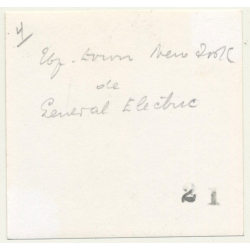 4
Exp. Down New York
de
General Electric
21